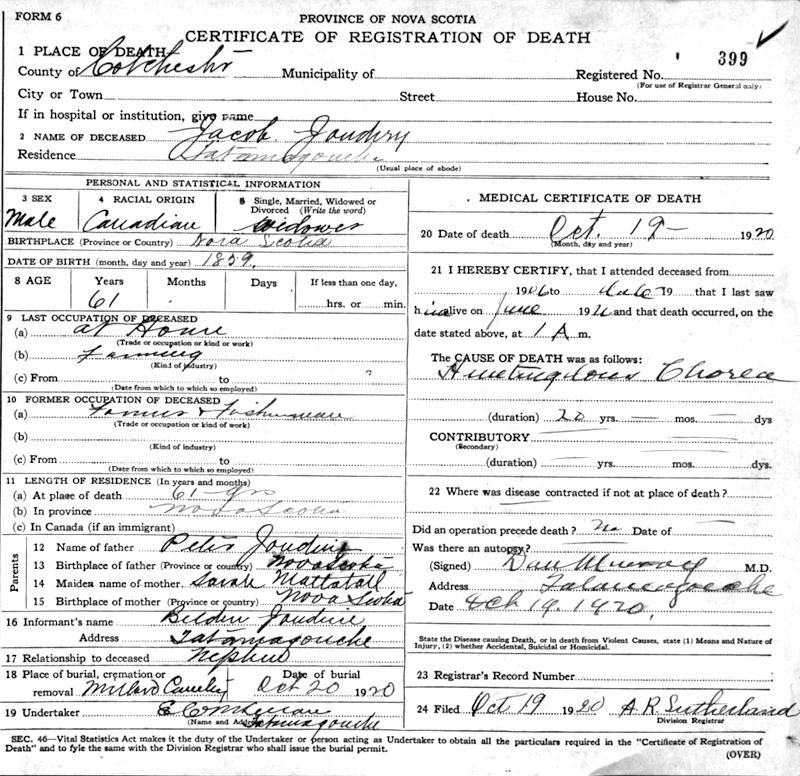 FORM 6
PROVINCE OF NOVA SCOTIA
CERTIFICATE OF REGISTRATION OF DEATH
399
1 PLACE OF DEATH
County of Colchester Municipality of Registered No.
(For use of Registrar General only)
City or Town Street House No.
If in hospital or institution, give name
2 NAME OF DECEASED Jacob Joudry
Residence Tatamagouche
(Usual place of abode)
PERSONAL AND STATISTICAL INFORMATION
3 SEX 4 RACIAL ORIGIN 5 Single, Married, Widowed or Divorced (Write the word)
Male Canadian Widower
BIRTHPLACE (Province or Country) Nova Scotia
DATE OF BIRTH (month, day and year) 1859
8 AGE Years Months Days If less than one day,
61 hrs. or min.
9 LAST OCCUPATION OF DECEASED
(a) at Home
(Trade or occupation or kind or work)
(b) Farming
(Kind of industry)
(c) From to
(Date from which to which so employed)
10 FORMER OCCUPATION OF DECEASED
(a) Farmer & Fisherman
(Trade or occupation or kind of work)
(b)
(Kind of industry)
(c) From to
(Date from which to which so employed)
11 LENGTH OF RESIDENCE (In years and months)
(a) At place of death 61 yrs
(b) In province Nova Scotia
(c) In Canada (if an immigrant)
Parents
12 Name of father Peter
13 Birthplace of father (Province or country) Nova Scotia
14 Maiden name of mother Sarah Mattatall
15 Birthplace of mother (Province or country) Nova Scotia
16 Informant's name
Address Tatamagouche
17 Relationship to deceased Nephew
18 Place of burial, cremation or removal Date of burial
Oct 20 1920
19 Undertaker
(Name and Address) Tatamagouche
MEDICAL CERTIFICATE OF DEATH
20 Date of death Oct. 19 - 1920
(Month, day and year)
21 I HEREBY CERTIFY, that I attended deceased from
19 to date 19 that I last saw
him alive on June 19 and that death occurred, on the
date stated above, at 1 A m.
The CAUSE OF DEATH was as follows:
Huntingtons Chorea
(duration) 20 yrs. — mos. — dys
CONTRIBUTORY
(Secondary)
(duration) — yrs. — mos. — dys.
22 Where was disease contracted if not at place of death?
Did an operation precede death? No Date of —
Was there an autopsy?
(Signed) Dan Murray M.D.
Address Tatamagouche
Date Oct. 19. 1920.
State the Disease causing Death, or in death from Violent Causes, state (1) Means and Nature of
Injury, (2) whether Accidental, Suicidal or Homicidal.
23 Registrar's Record Number
24 Filed Oct 19 1920 A R Sutherland
Division Registrar
SEC. 46—Vital Statistics Act makes it the duty of the Undertaker or person acting as Undertaker to obtain all the particulars required in the "Certificate of Registration of
Death" and to fyle the same with the Division Registrar who shall issue the burial permit.
(OVER)